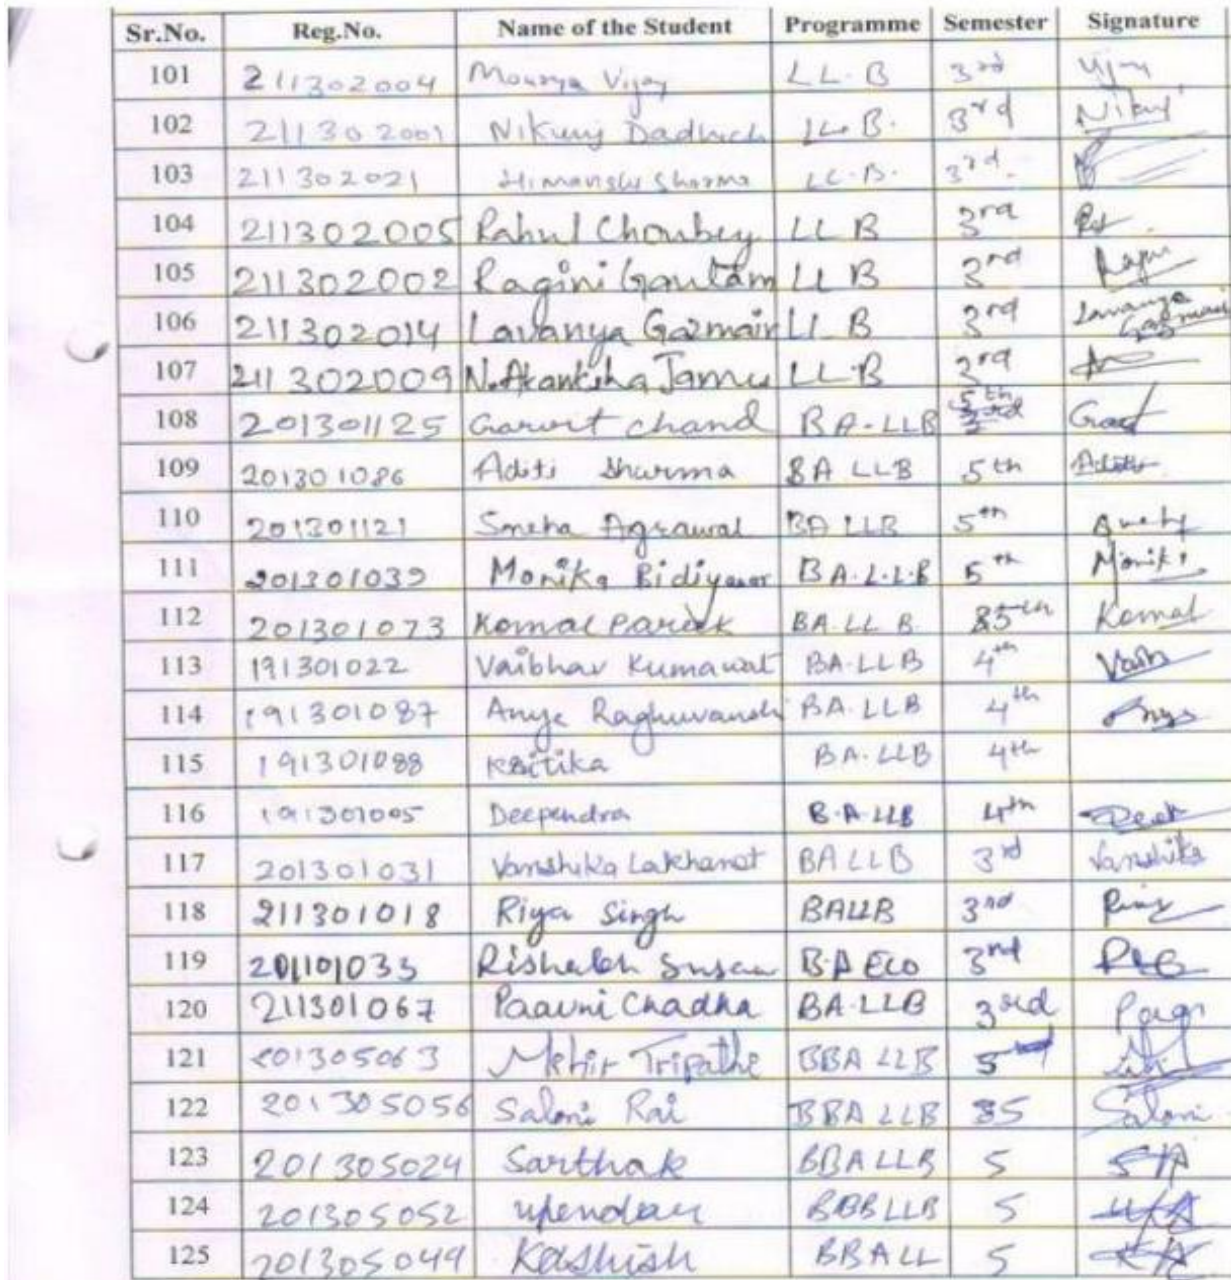 Sr.No. Reg.No. Name of the Student Programme Semester Signature
101 211302004 Mourya Vijay LL.B 3rd Vijay
102 211302001 Nikunj Dadhich LL.B. 3rd Nikunj
103 211302021 Himanshu Sharma LL.B. 3rd.
104 211302005 Rahul Choubey LLB 3rd
105 211302002 Ragini Gautam LLB 3rd
106 211302014 Lavanya Gazmair LLB 3rd Lavanya
107 211302009 N.Akanksha LLB 3rd
108 201301125 Garvit chand BA-LLB 5th
109 201301086 Aditi Sharma BA LLB 5th Aditi
110 201301121 Sneha Agrawal BA LLB 5th
111 201301039 Monika BA.L.L.B 5th Monika
112 201301073 Komal Pareek BA.LL B. 5th Komal
113 191301022 Vaibhav Kumawat BA.LLB 4th
114 191301087 Raghuvanshi BA.LLB 4th
115 191301088 Kritika BA.LLB 4th
116 191301005 Deependra B.A.LLB 4th
117 201301031 Vanshika BALLB 3rd Vanshika
118 211301018 Riya Singh BALLB 3rd
119 201101033 BA Eco 3rd
120 211301067 Paavni Chadha BA.LLB 3rd
121 201305063 Tripathi BBA LLB 5
122 201305056 Saloni Rai BBA LLB 5 Saloni
123 201305024 Sarthak BBALLB 5
124 201305052 BBBLLB 5
125 201305049 Kashish BBALL 5